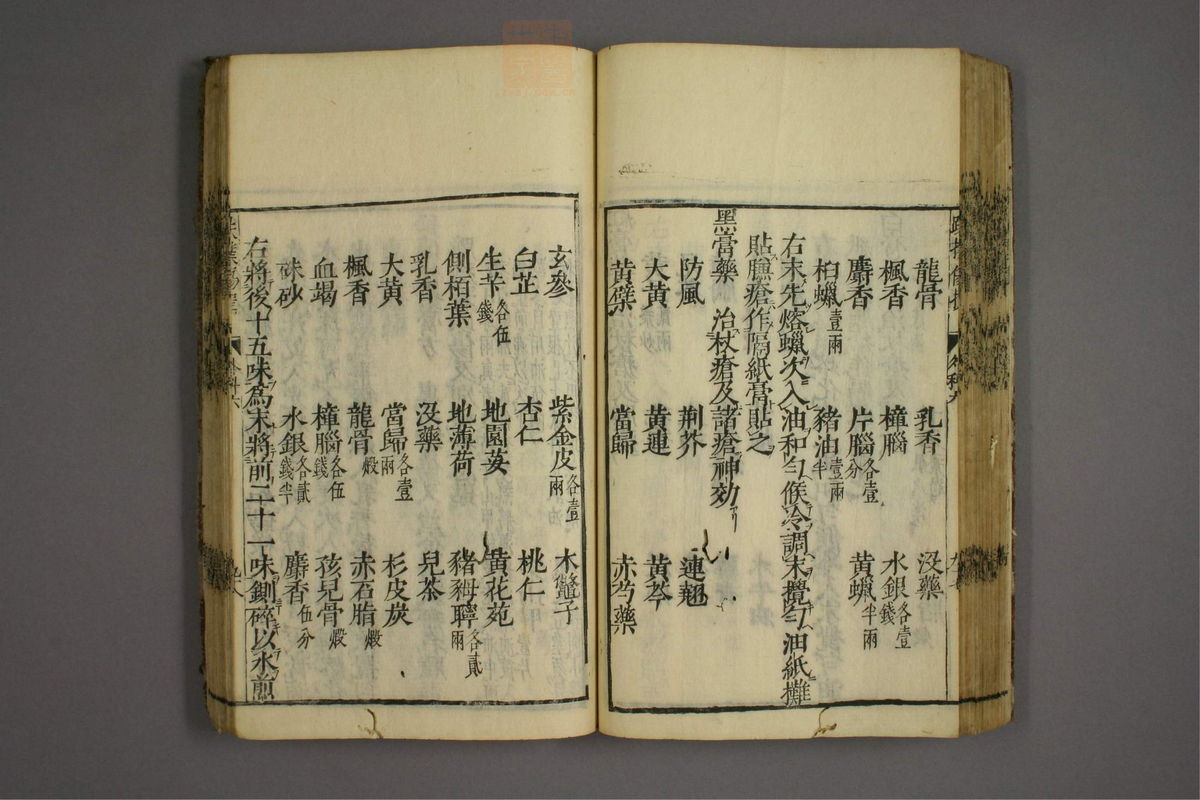 龍骨 乳香 沒藥
楓香 樟腦 水銀各壹錢
麝香 片腦各壹分 黃蠟半兩
柏蠟壹兩 豬油壹兩半
右末先熔蠟次入油和勻候冷調末攪勻油紙攤
貼臁瘡作隔紙膏貼之
黑膏藥 治杖瘡及諸瘡神効
防風 荆芥 連翹
大黃 黃連 黃芩
黃蘗 當歸 赤芍藥
玄參 紫金皮各壹兩 木鱉子
白芷 杏仁 桃仁
生芐各伍錢 地園荽 黃花苑
側栢葉 地薄荷 豬姆聹各貳兩
乳香 沒藥 兒茶
大黃 當歸各壹兩 杉皮炭
楓香 龍骨煅 赤石脂煅
血竭 樟腦各伍錢 孩兒骨煅
硃砂 水銀各貳錢半 麝香伍分
右將後十五味為末將前二十一味剉碎以水煎